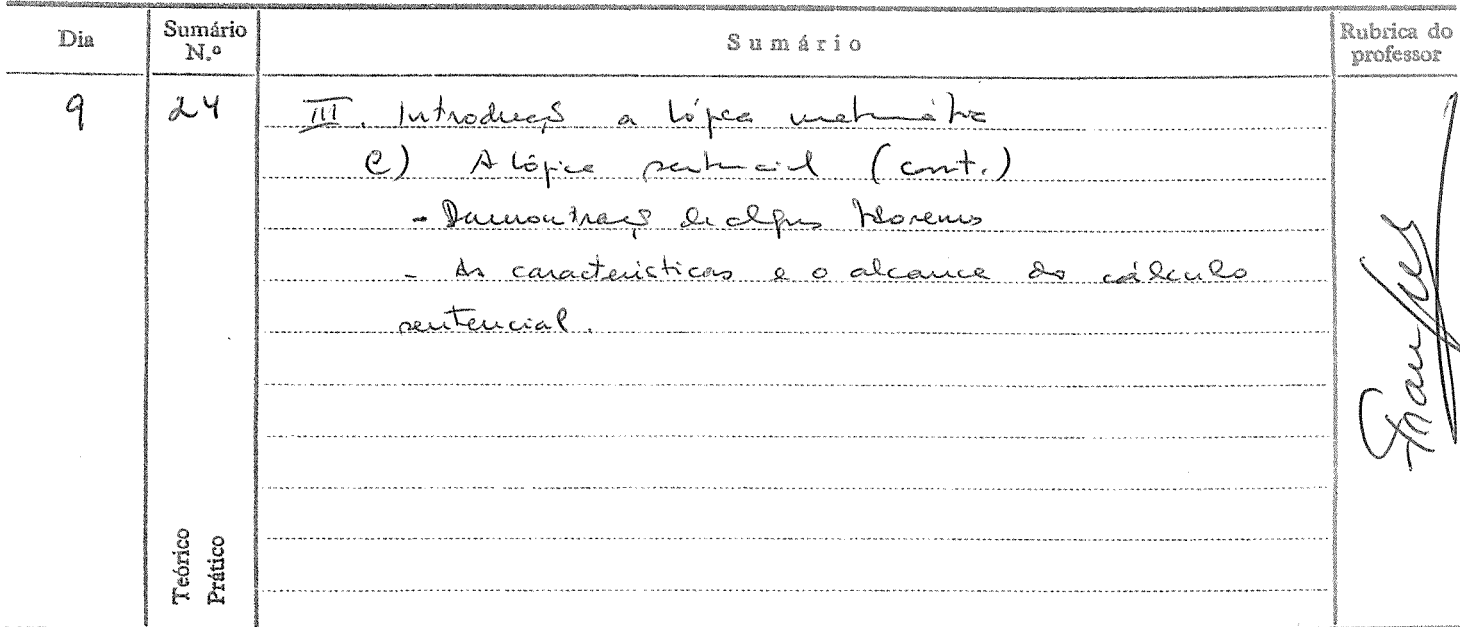 Dia
Sumário N.º
Sumário
Rubrica do professor
9
24
III. Introdução a lógica matemática
C) A lógica sentencial (cont.)
- Demonstração de alguns teoremas
- As características e o alcance do cálculo
sentencial.
Teórico
Prático